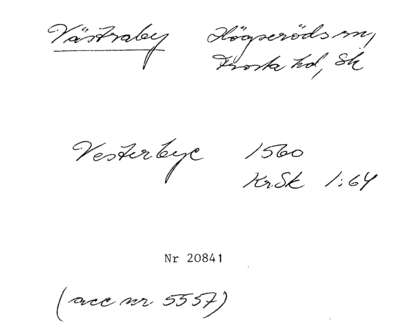 Västraby Högseröds sn,
Frosta hd, Sk
Vesterbye 1560
KrSk 1:64
Nr 20841
(acc nr 5557)